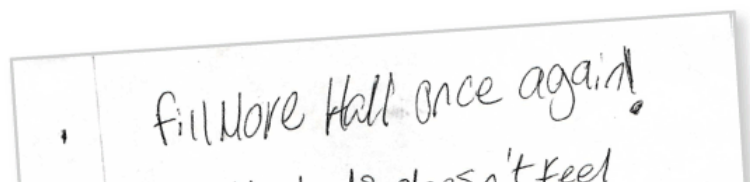 fillMore Hall once again!
doesn't feel